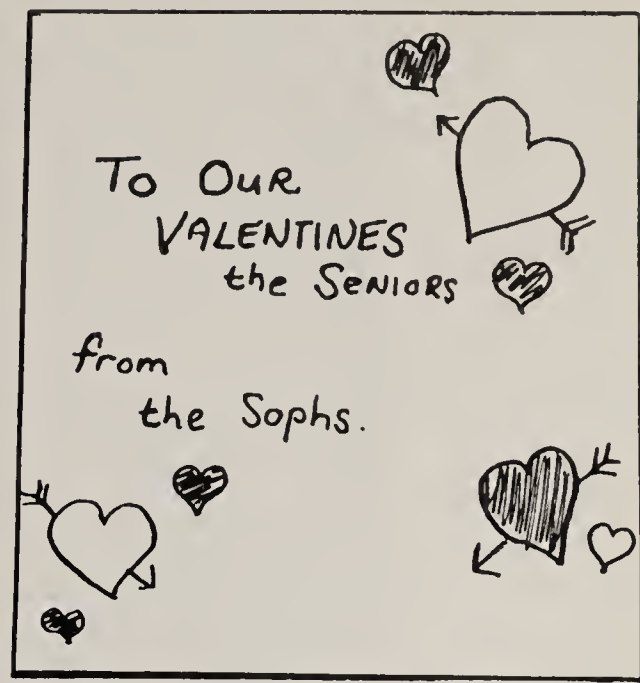 To Our
VALENTINES
the SENIORS
from
the Sophs.